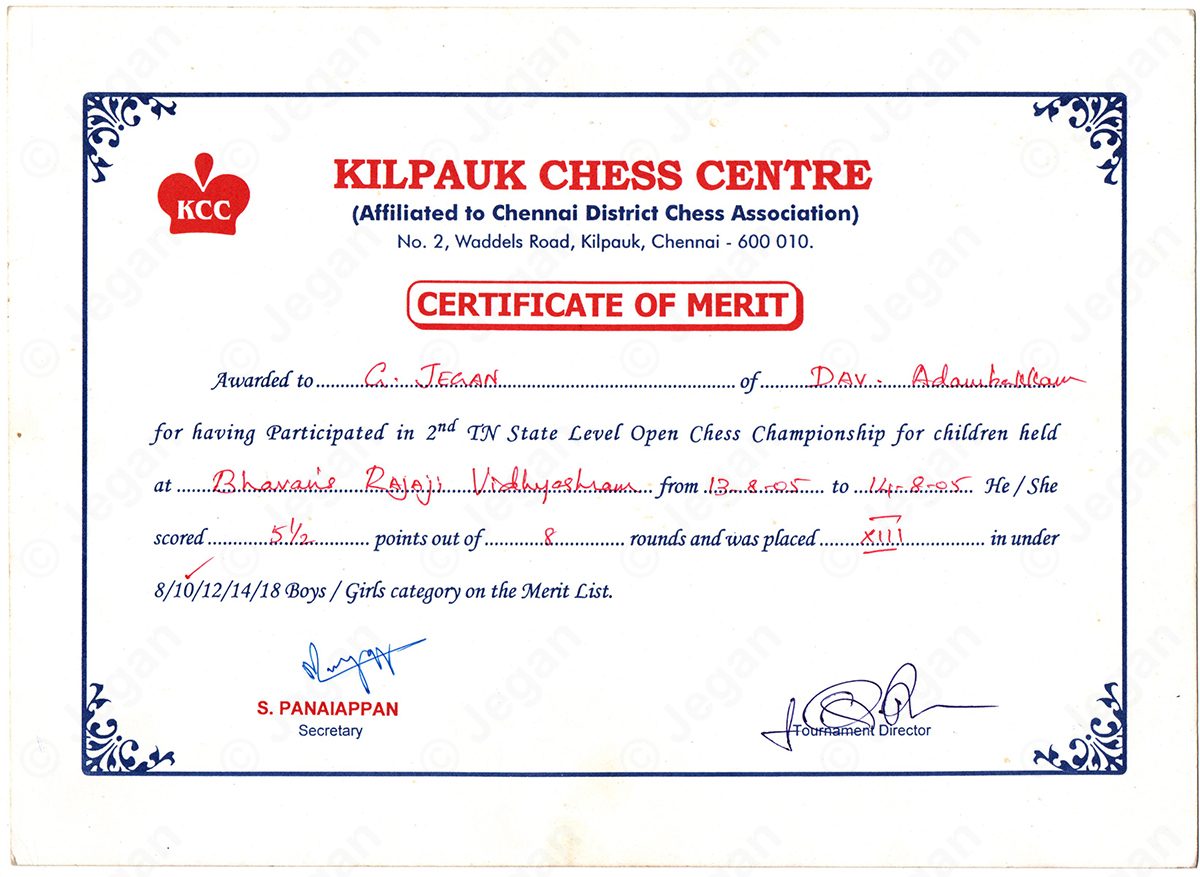 KCC
KILPAUK CHESS CENTRE
(Affiliated to Chennai District Chess Association)
No. 2, Waddels Road, Kilpauk, Chennai - 600 010.
CERTIFICATE OF MERIT
Awarded to G. JEGAN of DAV. Adambakkam
for having Participated in 2nd TN State Level Open Chess Championship for children held
at Bhavan's Rajaji Vidhyashram from 13-8-05 to 14-8-05 He / She
scored 5½ points out of 8 rounds and was placed XIII in under
8/10/12/14/18 Boys / Girls category on the Merit List.
S. PANAIAPPAN
Secretary
Tournament Director
© Jegan